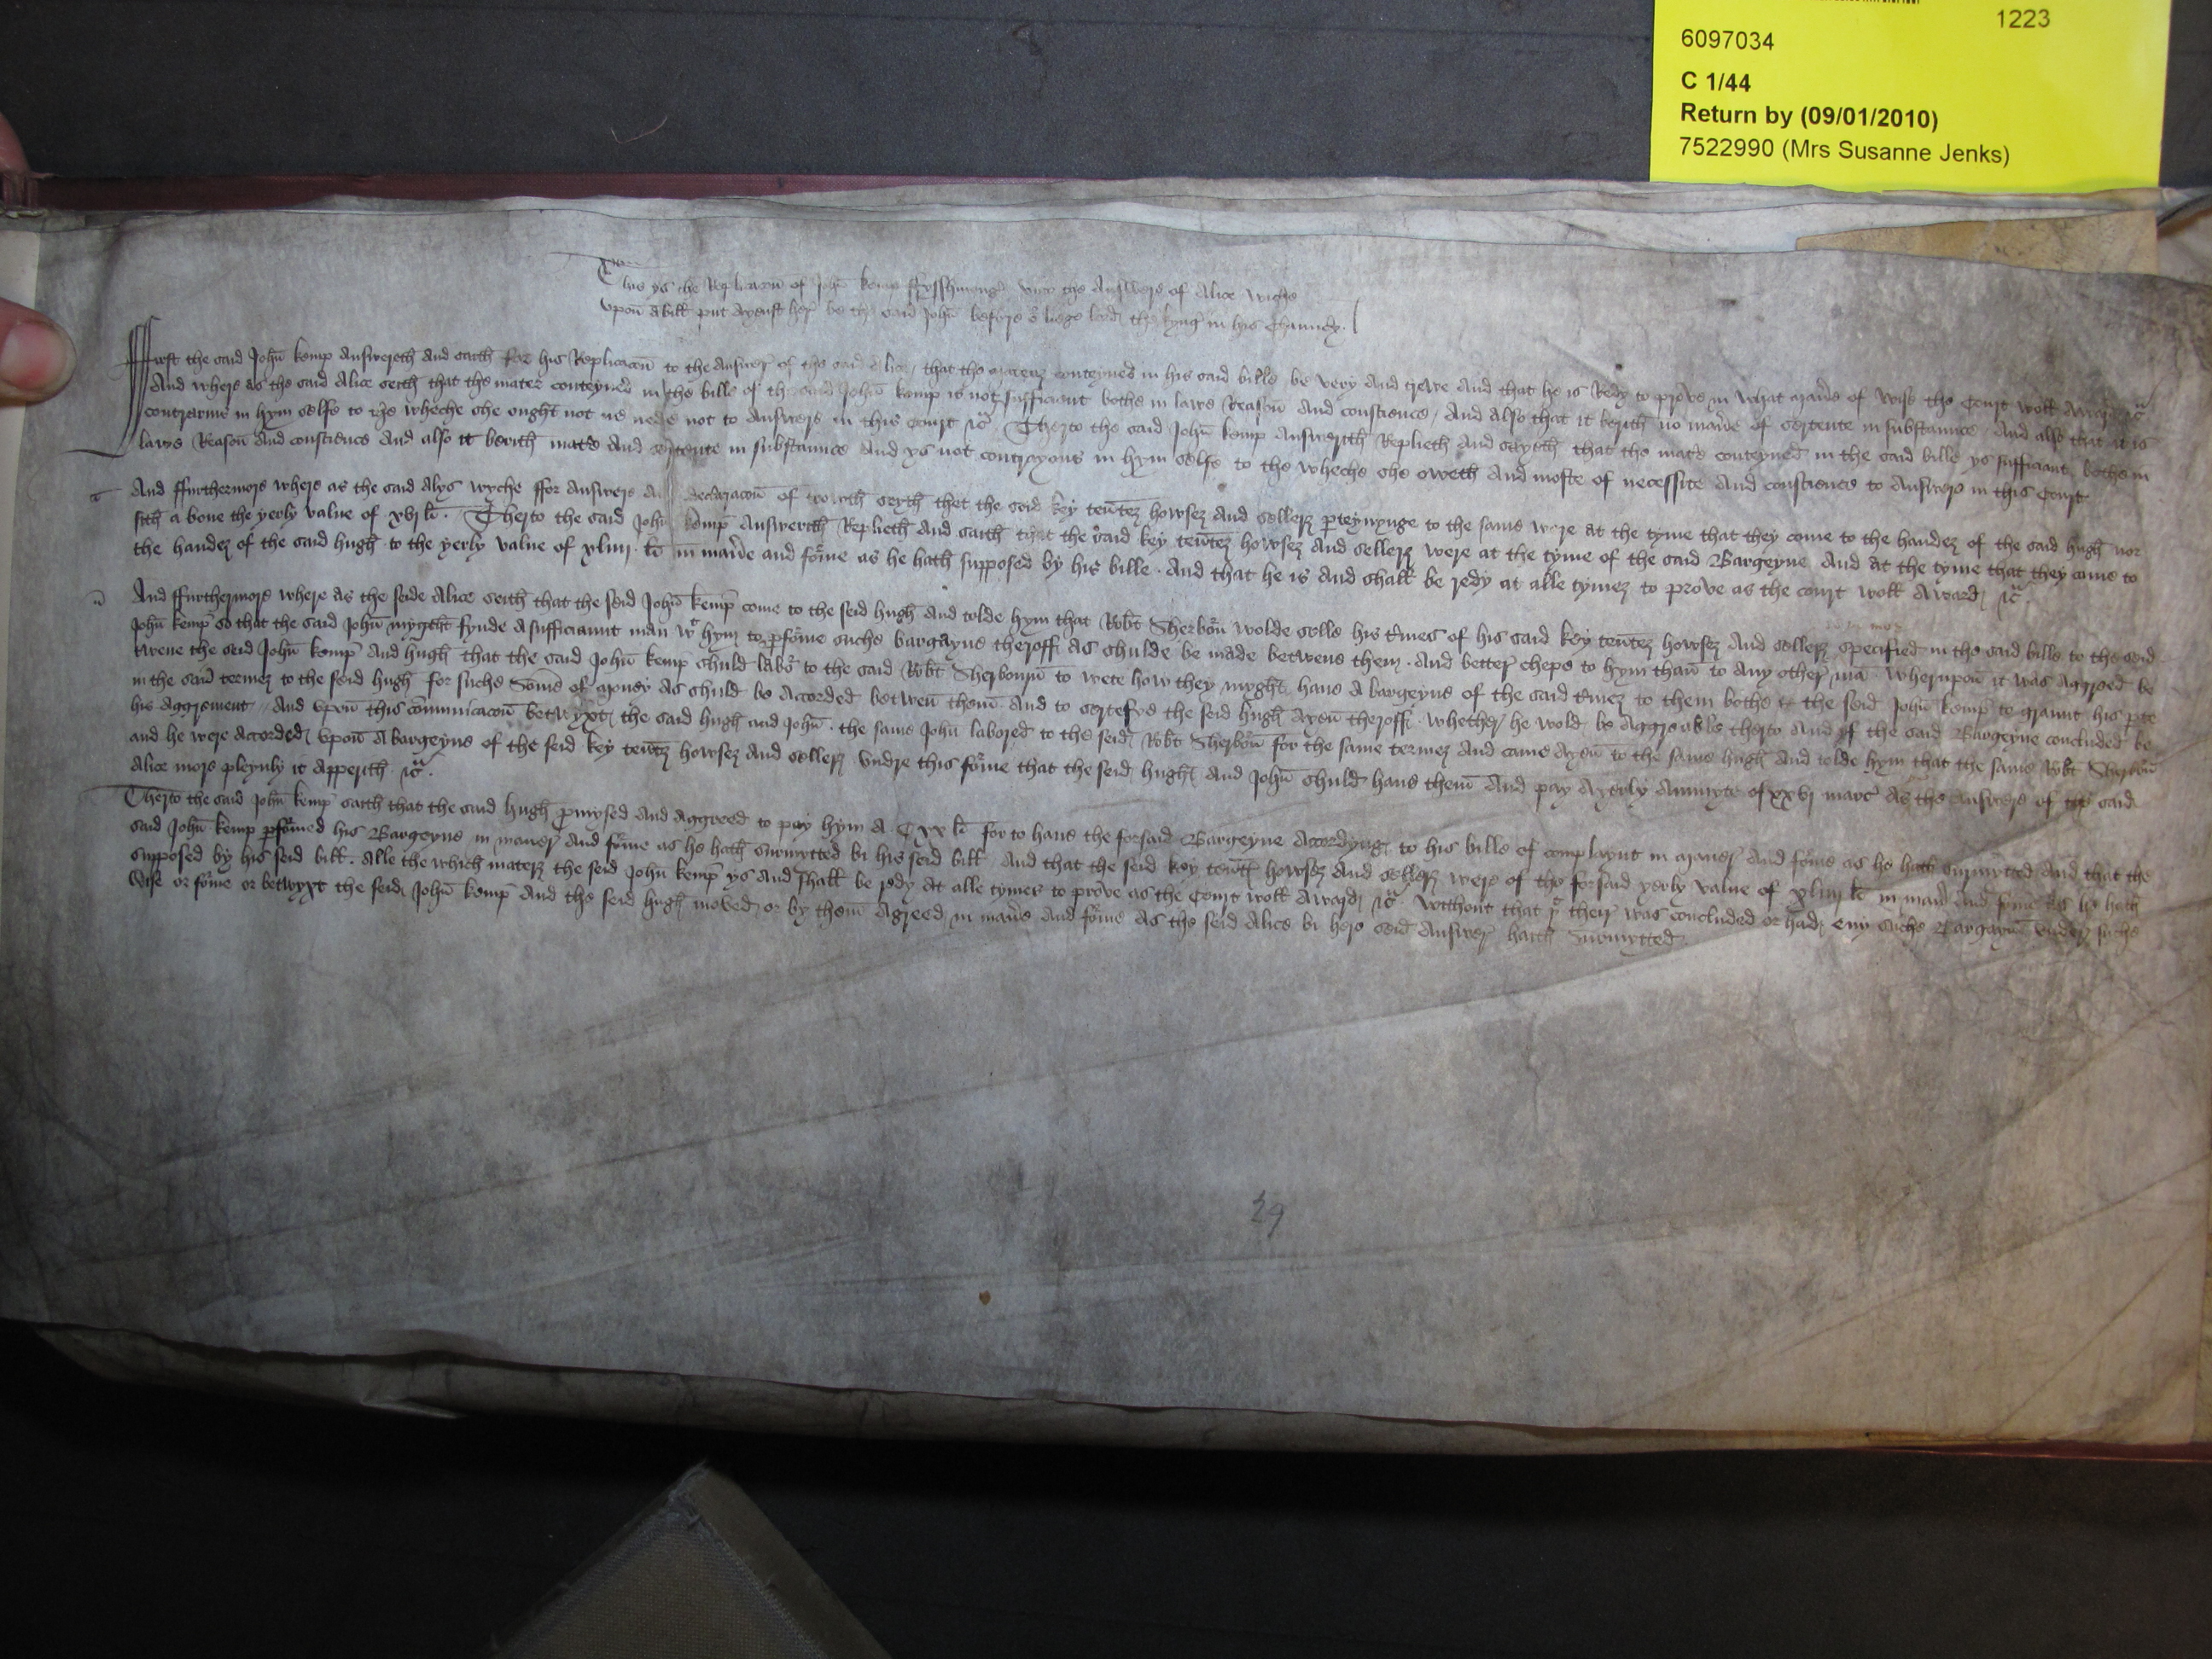 1223
6097034
C 1/44
Return by (09/01/2010)
7522990 (Mrs Susanne Jenks)
This ys the Replicacōn of John̄ kemp ffysshmong' vnto the Answere of Alice wiche
vpon̄ a bill put ayenst her be the said John̄ before oʳ liege lord the kyng in his Chauncħ.
ffirst the said John̄ kemp Answereth And saith for his Replicacōn to the Answer of the said Alice, that the materz conteyned in his said bille be very And trewe And that he is Redy to prove in what man̄e of wise the Court woll Award &c̄
And where as the said Alice seith that the mater conteyned in the bille of the said John̄ kemp is not sufficient bothe in lawe Reason̄ And conscience, And also that it berith no man̄e of sentence in substaunce And also that it is
contrarine in hym selfe to the wheche she ought not ne nede not to Answere in this Court &c̄. Therto the said John̄ kemp Answerith Replieth And sayeth that the mat'e conteyned in the said bille ys sufficiant bothe in
lawe Reason̄ And conscience And also it berith mat'e And sentence in substaunce And ys not contrayous in hym selfe to the wheche she oweth And moste of necessite And conscience to Answere in this Court
And ffurthermore where as the said Alys wyche ffor Answere declaracōn of trowth seyth that the said key ten̄tez howsez And sellerz p'teynynge to the same were at the tyme that they come to the handez of the said hugh nor
sith a bove the yerly value of xvj li. Therto the said John̄ kemp Answerith Replieth And saith that the said key ten̄tez howsez And sellerz were at the tyme of the said Bargeyne And at the tyme that they come to
the handez of the said hugh to the yerly value of xliiij li in man̄e and fōrme as he hath supposed by his bille. And that he is And shall be redy at alle tymez to prove as the court woll Award &c̄
And ffurthermore where as the seide Alice seith that the seid John̄ kemp come to the seid hugh And tolde hym that Rob't Sherborn̄ wolde selle his t'mes of his said key ten̄tez howsez And sellerz specified in the said bille to the seid
John̄ kemp so that the said John̄ myght fynde a sufficiaunt man wᵗ hym to p'fōrme suche bargayne theroff As shulde be made betwene them. And better chepe to hym than̄ to Any other mā. Wherupon̄ it was Aggreed be
twene the seid John̄ kemp And hugh that the said John̄ kemp shuld labōr to the said Rob't Sherborn̄ to wete how they myght have A bargeyne of the said t'mez to them bothe & the seid John̄ kemp to graunt his p'te
in the said termez to the seid hugh for suche Som̄e of money As shuld be Accorded betwen̄ them̄ And to certefye the seid hugh Ayen̄ theroff Whether he wold be Aggreable therto And yf the said Bargeyne concluded be
his Aggrement, And vpon̄ this com̄micacōn betwyxt the said hugh and John̄. the same John̄ labored to the seid Rob't Sherborn̄ for the same termez And came Ayen̄ to the same hugh And tolde hym that the same Rob't Sherborn̄
and he were Accorded vpon̄ A bargeyne of the seid key ten̄tez howsez And sellerz Vndre this fōrme that the seid hugh And John̄ shuld have them̄ And pay A yerly Annuyte of xxvj marc' As the Answere of the said
Alice more pleynly it Apperith &c̄.
Therto the said John̄ kemp saith that the said hugh p'mysed And Aggreed to pay hym A Cxx li for to have the forsaid Bargeyne Accordyng to his bille of complaynt in maner And fōrme as he hath surmytted And that the
said John̄ kemp p'fōrmed his Bargeyne in maner And fōrme as he hath surmytted bi his seid bill And that the seid key ten̄tz howsez And sellerz were of the forsaid yerly value of xliiij li in man̄ And fōrme As he hath
supposed by his seid bill. Alle the which materz the seid John̄ kemp ys And shall be redy At alle tymes to prove as the Court woll Award &c̄. Without that yᵗ ther was concluded or had eny suche Bargayne vnder suche
wise or fōrme or betwyxt the seid John̄ kemp And the seid hugh moved or by them̄ Agreed in man̄e And fōrme As the seid Alice bi here seid Answer hath Surmytted.
29